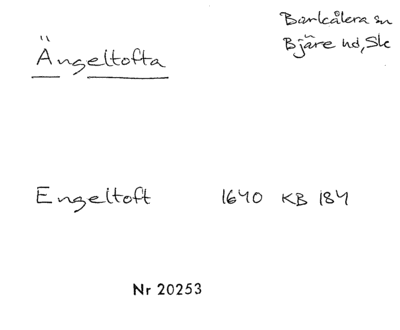 Barkåkra sn
Bjäre hd, Sk
Ängeltofta
Engeltoft 1640 KB 184
Nr 20253